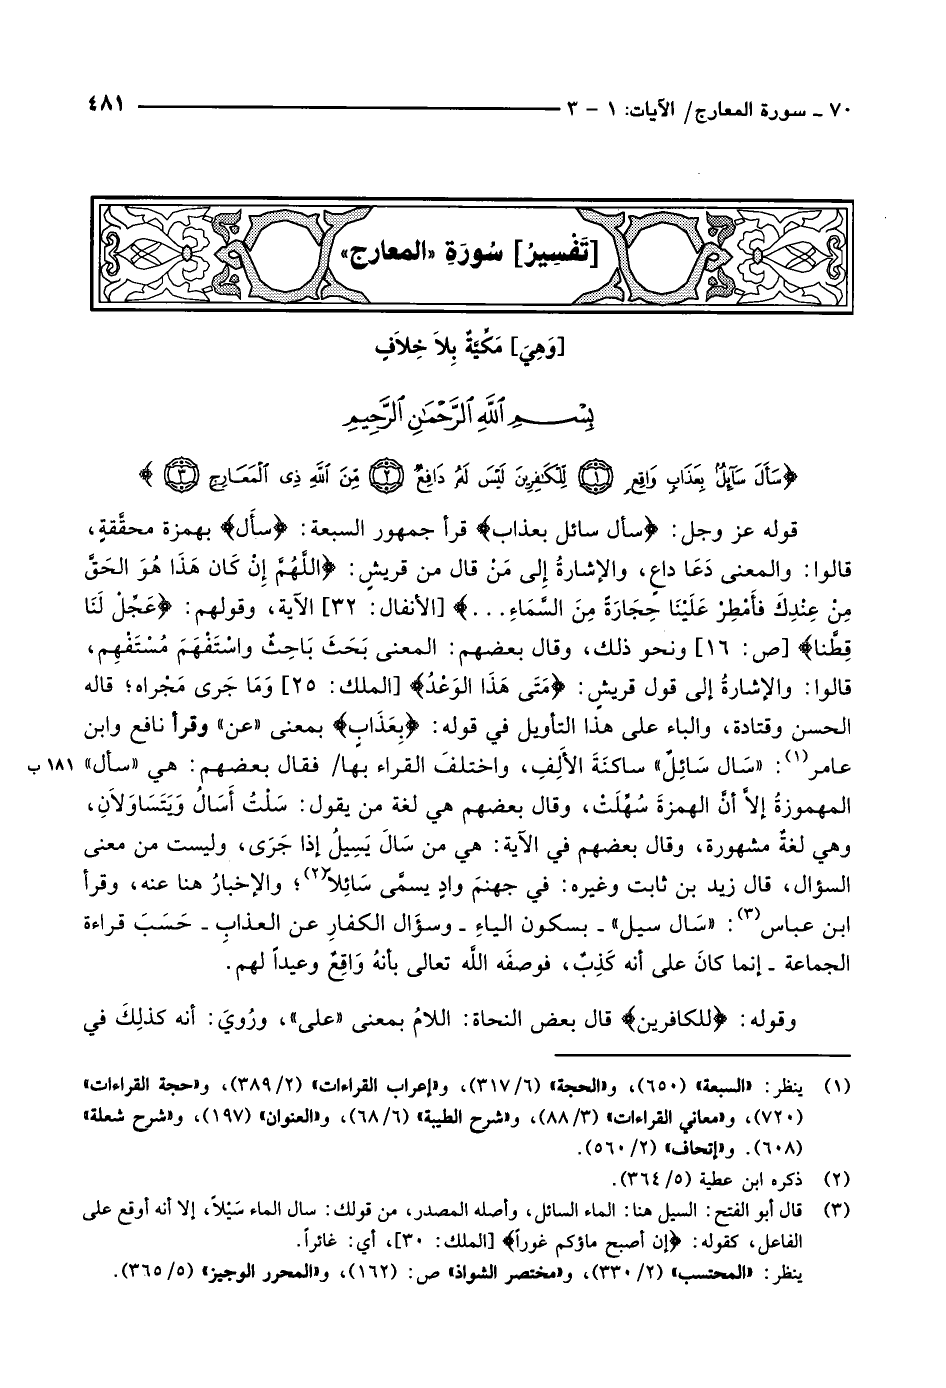 ٧٠ ـ سورة المعارج/ الآيات: ١ - ٣ ٤٨١
[تَفْسِيرُ] سُورَةِ «المعارج»
[وَهِيَ] مَكِّيَّةٌ بِلاَ خِلاَفٍ
بِسْمِ ٱللَّهِ ٱلرَّحْمَٰنِ ٱلرَّحِيمِ
﴿سَأَلَ سَآئِلٌۢ بِعَذَابٍ وَاقِعٍ ﴿١﴾ لِّلْكَٰفِرِينَ لَيْسَ لَهُۥ دَافِعٌ ﴿٢﴾ مِّنَ ٱللَّهِ ذِى ٱلْمَعَارِجِ ﴿٣﴾ ﴾
قوله عز وجل: ﴿سأل سائل بعذاب﴾ قرأ جمهور السبعة: ﴿سأَل﴾ بهمزة محقَّقةٍ،
قالوا: والمعنى دَعَا داعٍ، والإشارةُ إلى مَنْ قال من قريشٍ: ﴿اللَّهُمَّ إنْ كَان هَذَا هُوَ الحَقَّ
مِنْ عِنْدِكَ فَأَمْطِرْ عَلَيْنَا حِجَارَةً مِنَ السَّمَاءِ...﴾ [الأنفال: ٣٢] الآية، وقولهم: ﴿عَجِّلْ لَنَا
قِطَّنا﴾ [ص: ١٦] ونحو ذلك، وقال بعضهم: المعنى بَحَثَ بَاحِثٌ واسْتَفْهَمَ مُسْتَفْهِم،
قالوا: والإشارةُ إلى قول قريشٍ: ﴿مَتَى هَذَا الوَعْدُ﴾ [الملك: ٢٥] وَمَا جَرى مَجْراه؛ قاله
الحسن وقتادة، والباء على هذا التأويل في قوله: ﴿بِعَذَابٍ﴾ بمعنى «عن» وقرأ نافع وابن
عامر(١): «سَال سَائِلٌ» ساكنَةَ الألِفِ، واختلفَ القراء بها/ فقال بعضهم: هي «سأل» ١٨١ ب
المهموزةُ إلاَّ أنَّ الهمزةَ سُهِّلَتْ، وقال بعضهم هي لغة من يقول: سَلْتُ أسَالُ وَيَتَسَاوَلاَنِ،
وهي لغةٌ مشهورة، وقال بعضهم في الآية: هي من سَالَ يَسِيلُ إذا جَرَى، وليست من معنى
السؤال، قال زيد بن ثابت وغيره: في جهنمَ وادٍ يسمَّى سَائِلاً(٢)؛ والإخبارُ هنا عنه، وقرأ
ابن عباس(٣): «سَال سيل» ـ بسكون الياءِ ـ وسؤال الكفارِ عن العذابِ ـ حَسَبَ قراءة
الجماعة ـ إنما كانَ على أنه كَذِبٌ، فوصفَه اللَّه تعالى بأنهُ وَاقِعٌ وعيداً لهم.
وقوله: ﴿للكافرين﴾ قال بعض النحاة: اللامُ بمعنى «على»، ورُوِيَ: أنه كذلِكَ في
(١) ينظر: «السبعة» (٦٥٠)، و«الحجة» (٣١٧/٦)، و«إعراب القراءات» (٣٨٩/٢)، و«حجة القراءات»
(٧٢٠)، و«معاني القراءات» (٨٨/٣)، و«شرح الطيبة» (٦٨/٦)، و«العنوان» (١٩٧)، و«شرح شعلة»
(٦٠٨). و«إتحاف» (٥٦٠/٢).
(٢) ذكره ابن عطية (٣٦٤/٥).
(٣) قال أبو الفتح: السيل هنا: الماء السائل، وأصله المصدر، من قولك: سال الماء سَيْلاً، إلا أنه أوقع على
الفاعل، كقوله: ﴿إن أصبح ماؤكم غوراً﴾ [الملك: ٣٠]، أي: غائراً.
ينظر: «المحتسب» (٣٣٠/٢)، و«مختصر الشواذ» ص: (١٦٢)، و«المحرر الوجيز» (٣٦٥/٥).